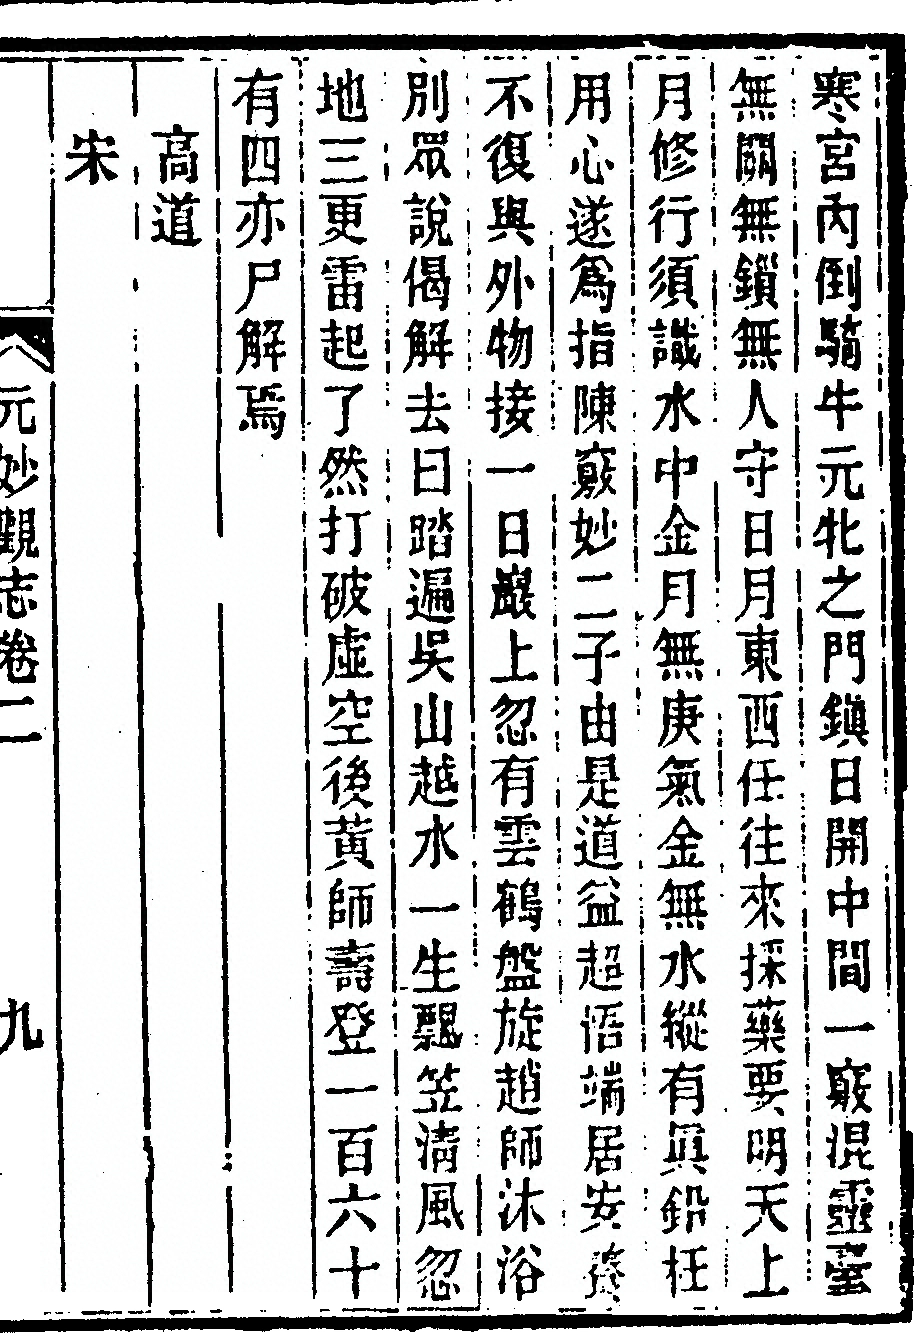 寒宮內倒騎牛元牝之門鎭日開中間一竅混靈臺
無關無鎖無人守日月東西任往來採藥要明天上
月修行須識水中金月無庚氣金無水縱有眞鉛枉
用心遂爲指陳竅妙二子由是道益超悟端居安養
不復與外物接一日巖上忽有雲鶴盤旋趙師沐浴
別眾說偈解去曰踏遍吳山越水一生飄笠淸風忽
地三更雷起了然打破虛空後黃師壽登一百六十
有四亦尸解焉
高道
宋
元妙觀志卷二
九